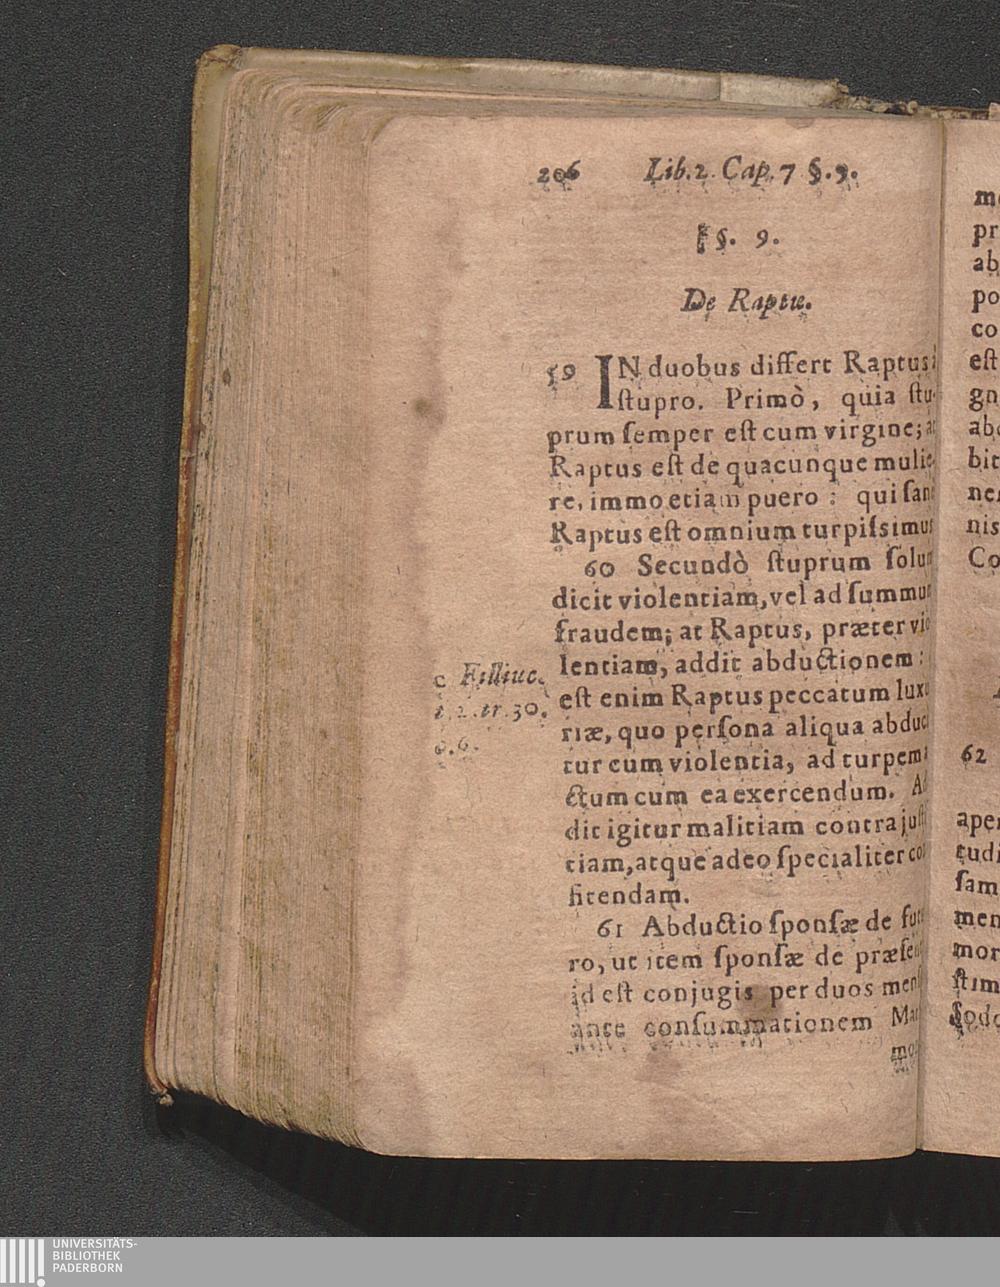 206 Lib. 2. Cap. 7 §. 9.
§. 9.
De Raptu.
59 IN duobus differt Raptus à
ſtupro. Primò, quia ſtu-
prum ſemper eſt cum virgine; at
Raptus eſt de quacunque mulie-
re, immo etiam puero : qui ſanè
Raptus eſt omnium turpiſsimus
60 Secundò ſtuprum ſolum
dicit violentiam, vel ad ſummum
fraudem; at Raptus, præter vio
lentiam, addit abductionem :
c Filliuc.
t. 2. tr. 30.
c. 6.
eſt enim Raptus peccatum luxu
riæ, quo perſona aliqua abduci
tur cum violentia, ad turpem a
ctum cum ea exercendum. Ad
dit igitur malitiam contra juſti
tiam, atque adeo ſpecialiter con
fitendam.
61 Abductio ſponſæ de futu
ro, ut item ſponſæ de præſen
id eſt conjugis per duos menſ
ante conſummationem Mat
mo
pr
ab
po
co
eſt
gn
bit
nis
Co
62
aper
tudi
ſam
men
mor
ſtim
Sodo
UNIVERSITÄTS-
BIBLIOTHEK
PADERBORN